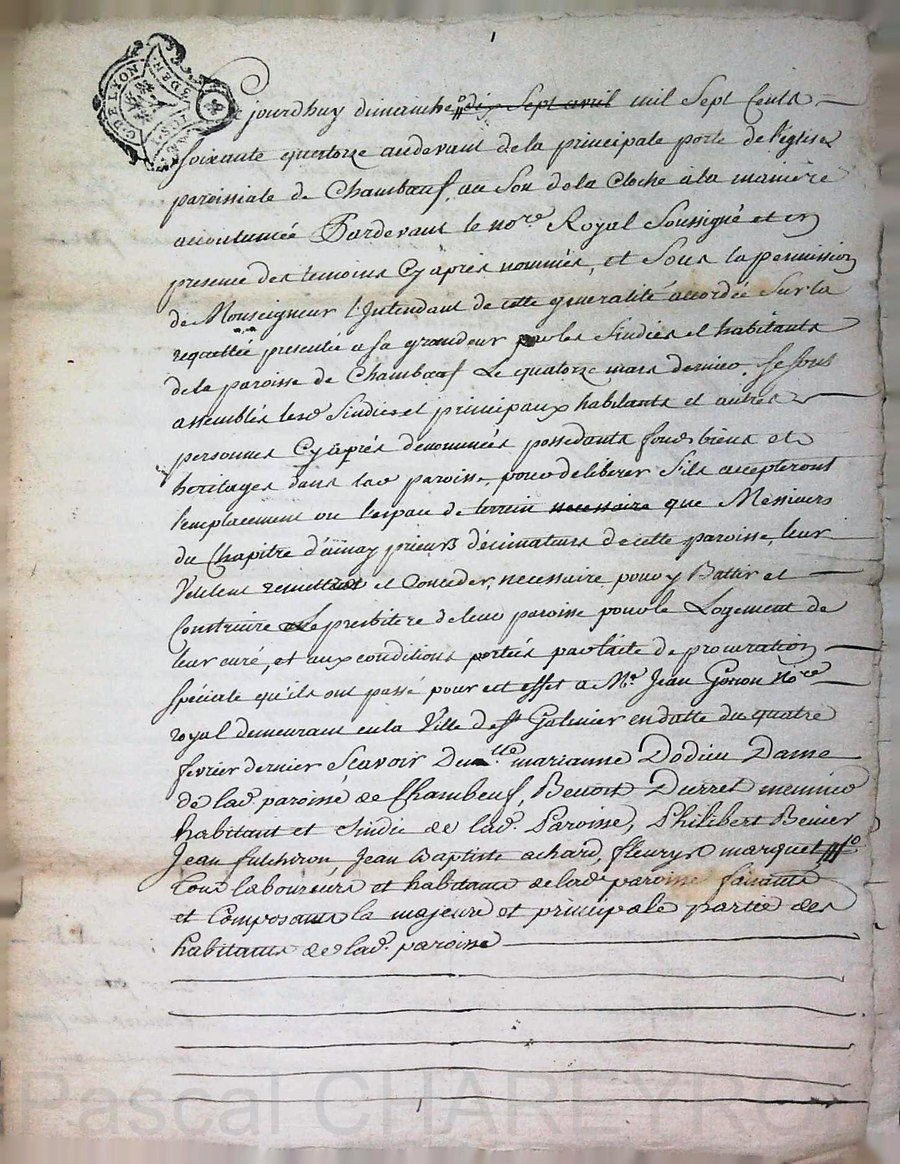 1
C. DE LYON
3 DEN
ejourdhuy dimanche dix Sept avril mil Sept Cents
soixante quatorze audevant de la principale porte de l'église
paroissiale de Chambœuf, au Son de la Cloche à la maniere
accoutumée Pardevant le no.re Royal Soussigné et en
presence des temoins Cy après nommés, et Sous la permission
de Monseigneur l'Intendant de cette generalité accordée Sur la
requette presentée a sa grandeur par les Sindics et habitants
de la paroisse de Chambœuf Le quatorze mars dernier. Se sont
assemblés lesd. Sindics et principaux habitants et autres
personnes Cy après denommées possedants fonds biens et
heritages dans lad. paroisse, pour deliberer S'ils accepteront
l'emplacement ou l'espau de terrein necessaire que Messieurs
du Chapitre d'ainay prieurs décimateurs de cette paroisse, leur
Veulent remettre et Conceder, necessaire pour y Battir et
Construire le presbitere de leur paroisse pour le Logement de
leur curé, et aux conditions portées par l'acte de procuration
spéciale qu'ils ont passé pour cet effet a M.e Jean Gonon no.re
royal demeurant en la Ville de St Galmier en datte du quatre
fevrier dernier Scavoir Dem.lle marianne Dodieu Dame
de lad. paroisse de Chambeuf, Benoit Durret meunier
habitant et Sindic de lad. Paroisse, Philibert Benier
Jean fulchiron, Jean Baptiste achard, fleury marquet
Tous laboureurs et habitants de lad. paroisse faisants
et Composants la majeure et principale partie des
habitants de lad. paroisse
Pascal CHAREYRON